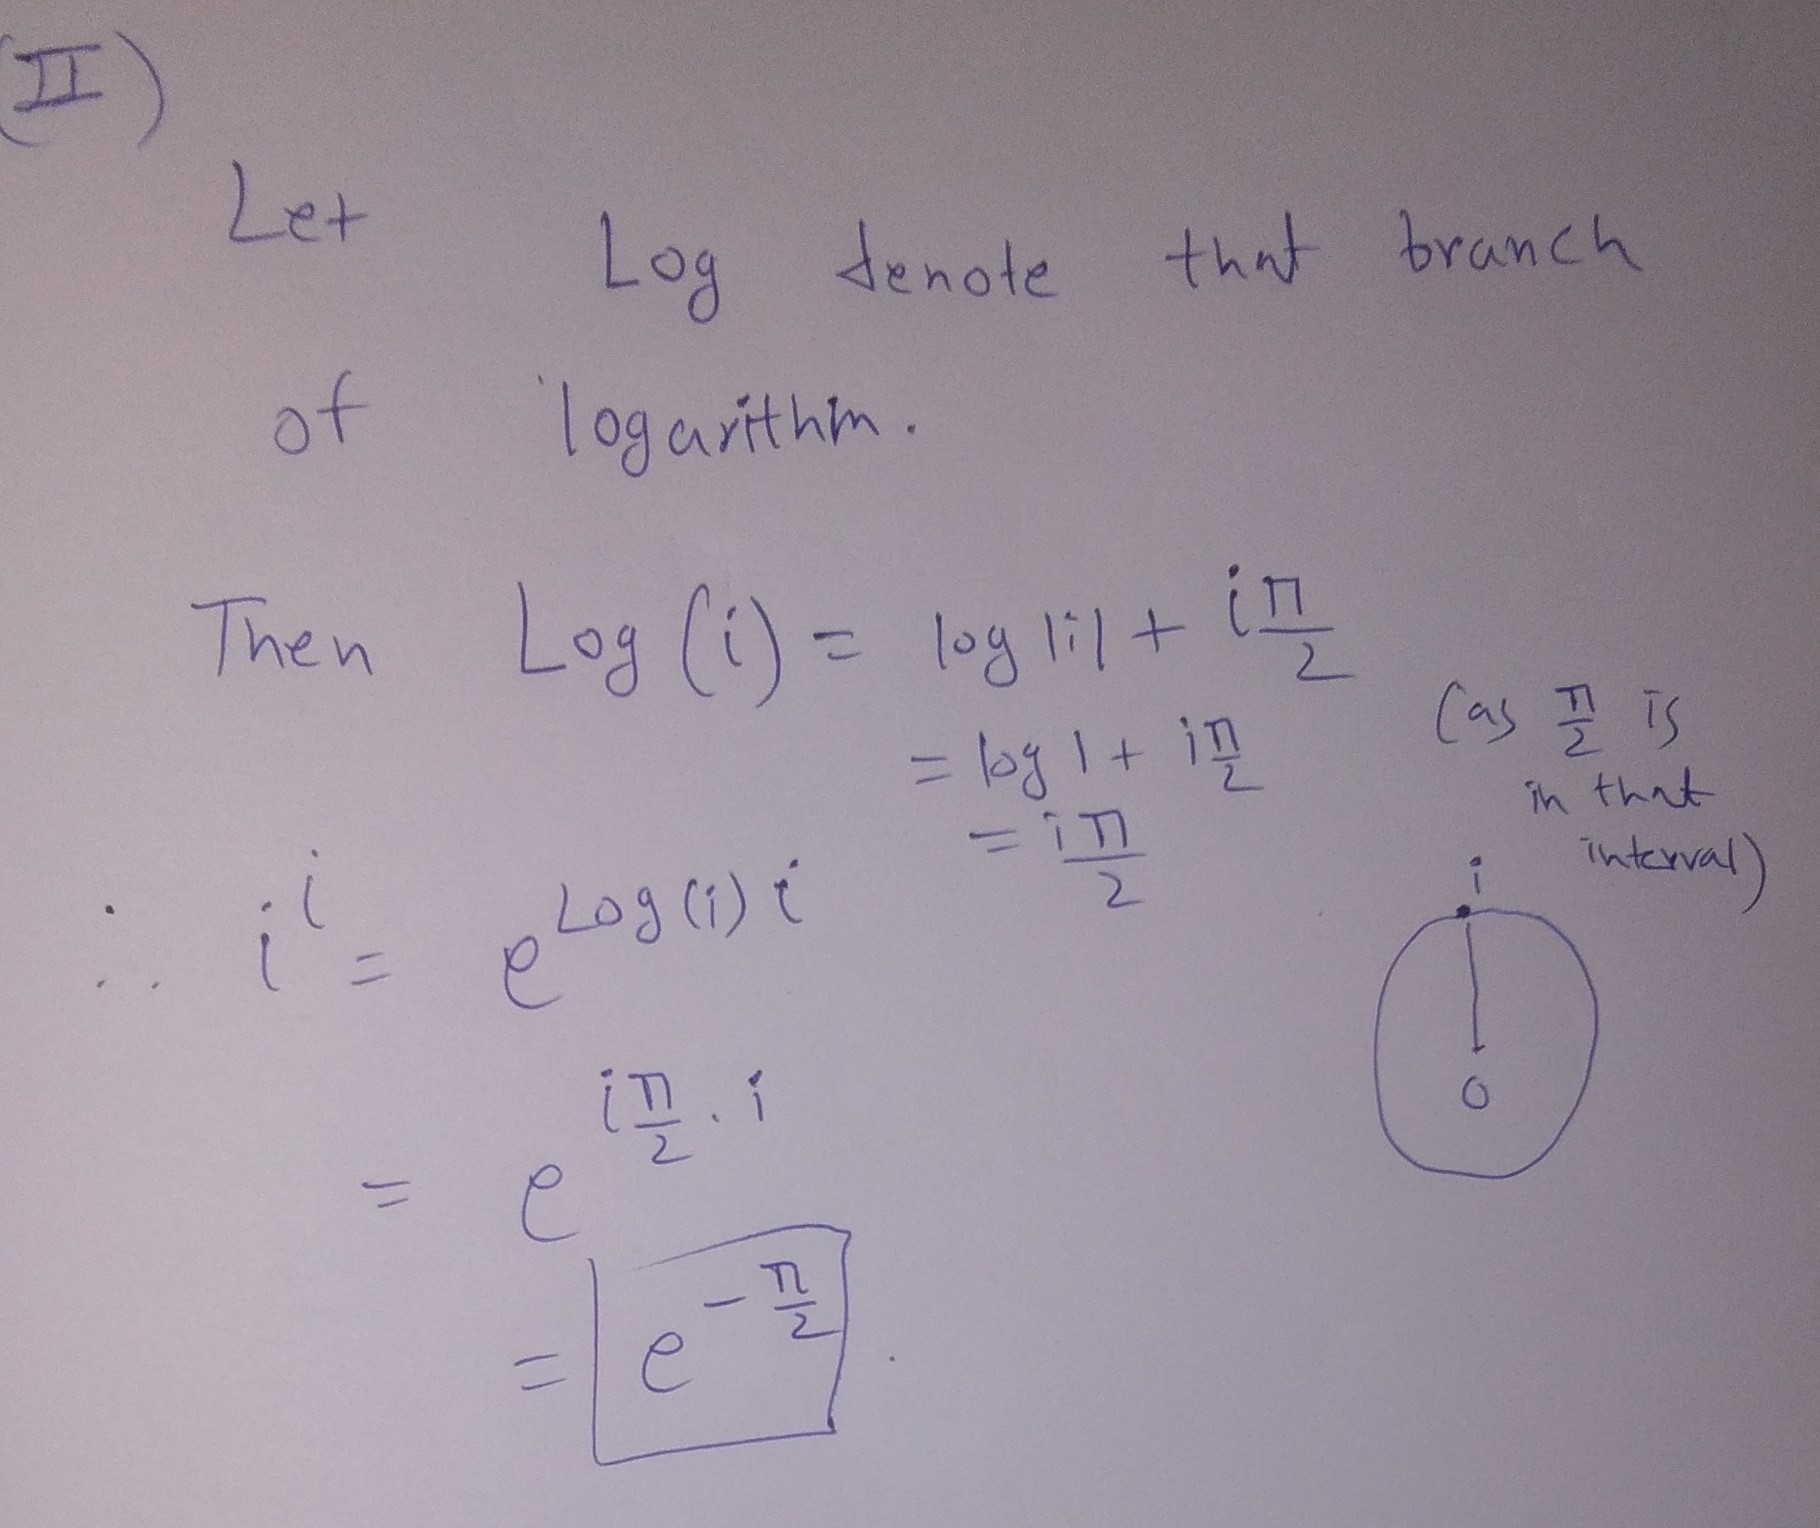 (II)
Let Log denote that branch
of logarithm.
Then Log (i) = log |i| + iπ/2
= log 1 + iπ/2
(as π/2 is
in that
interval)
= iπ/2
∴ i^i = e^{Log(i) i}
i
= e^{iπ/2 · i}
0
= e^{-π/2}.